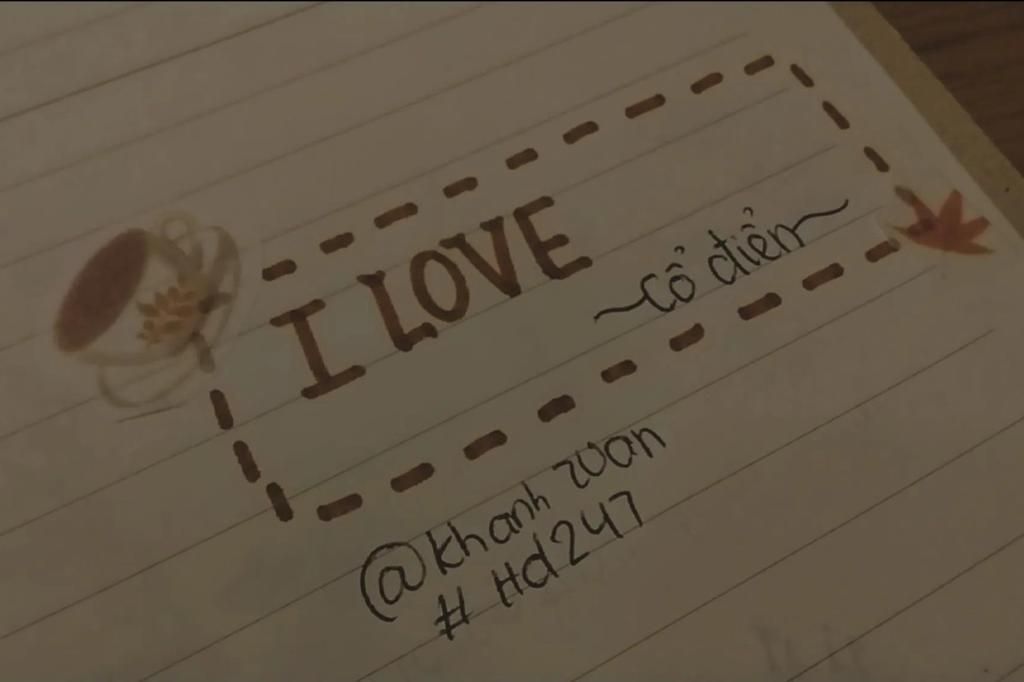 I LOVE
~cổ điển~
@khanh zuan
# Hd247